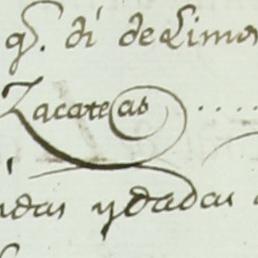 qṡ. di de Limos
Zacatecas ....
idas ydadas